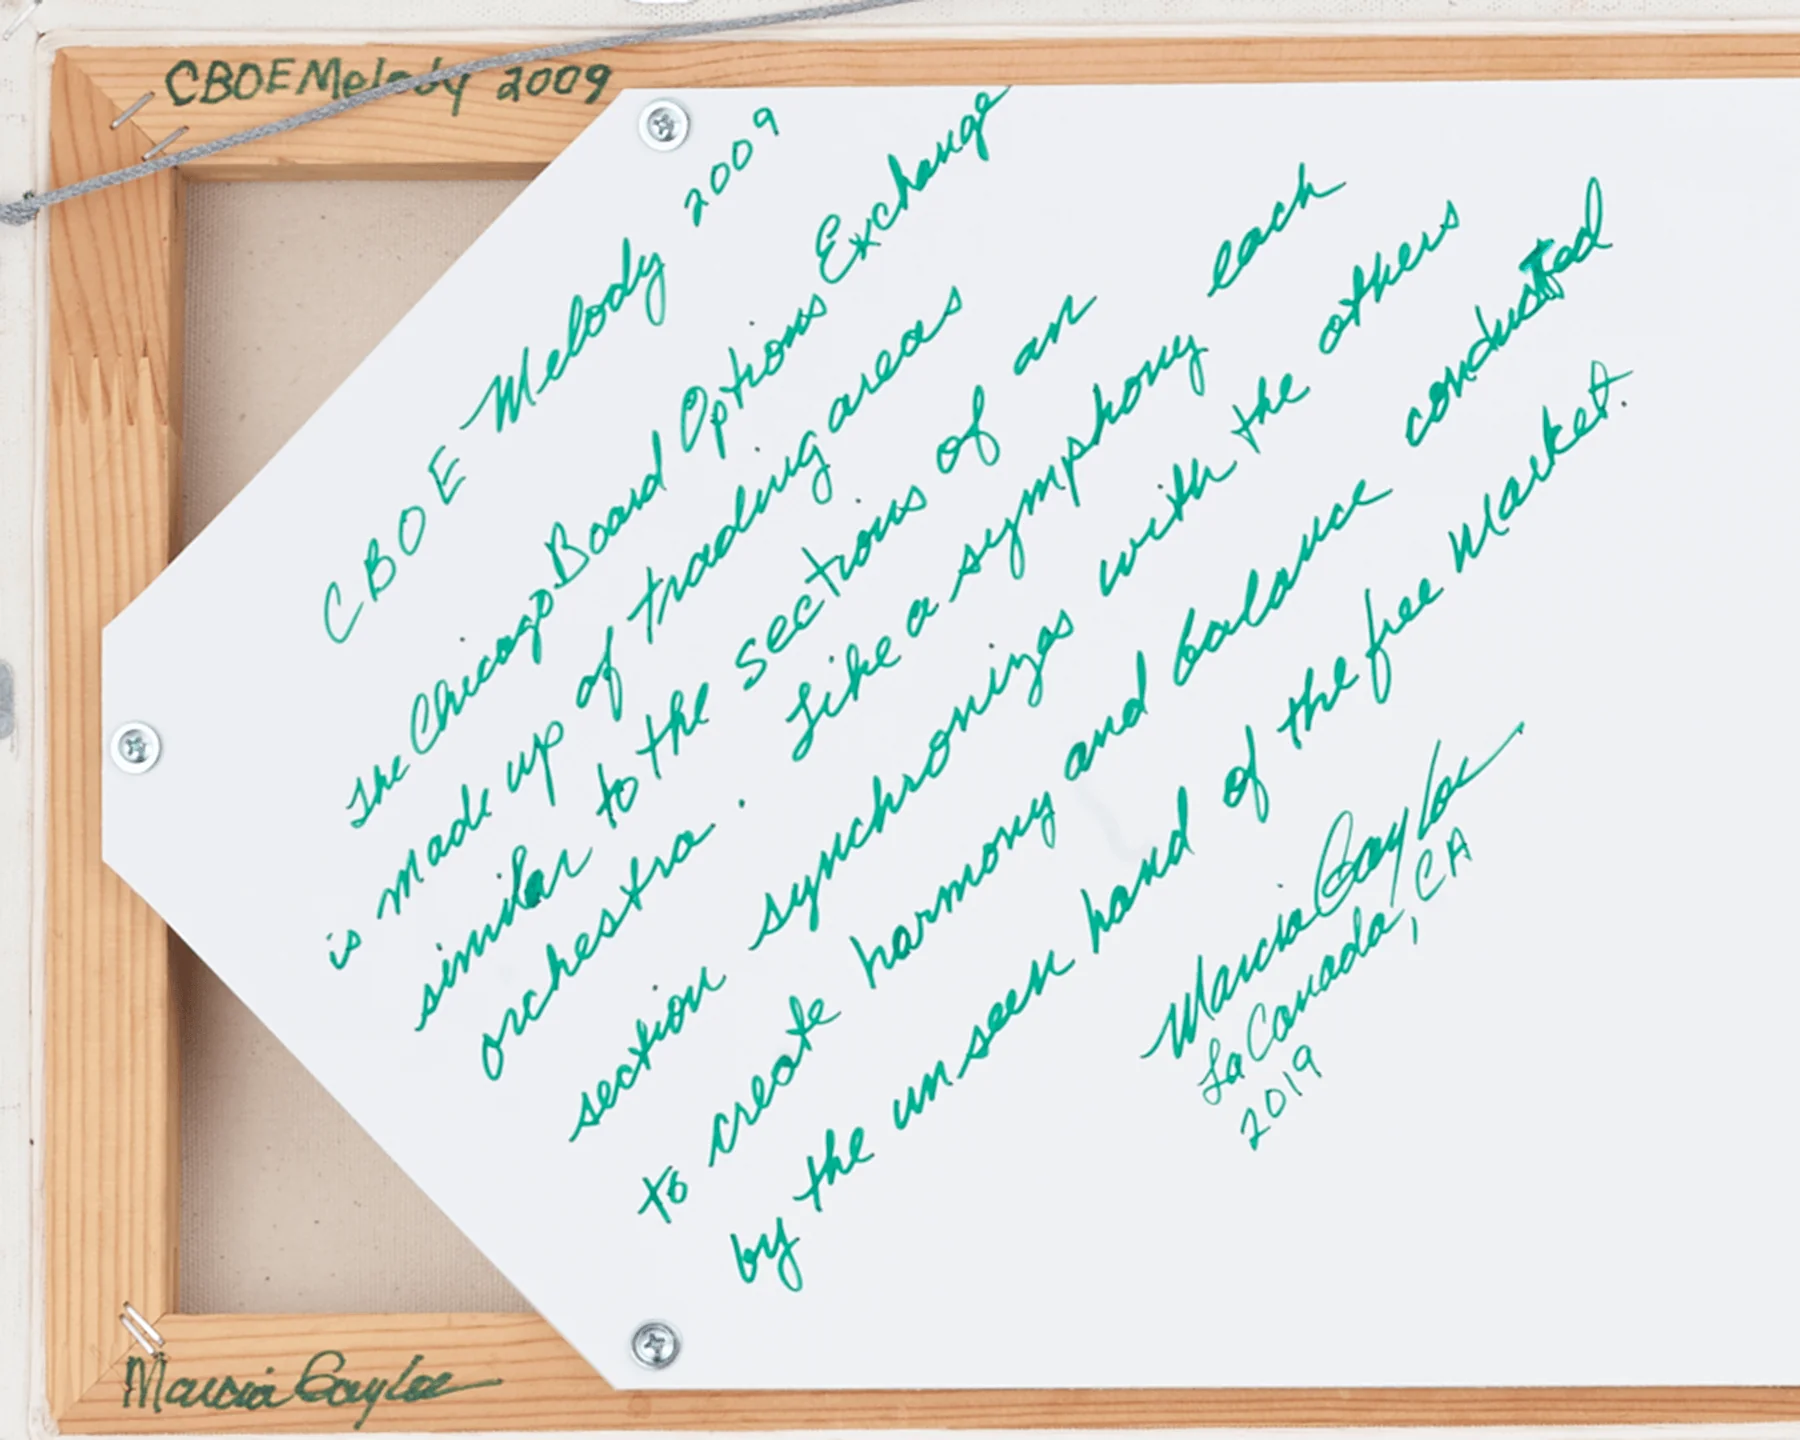 CBOE Melody 2009
CBOE Melody 2009
The Chicago Board Options Exchange
is made up of trading areas
similar to the sections of an
orchestra. Like a symphony each
section synchronizes with the others
to create harmony and balance conducted
by the unseen hand of the free market.
Marcia Gaylor
La Canada, CA
2019
Marcia Gaylor